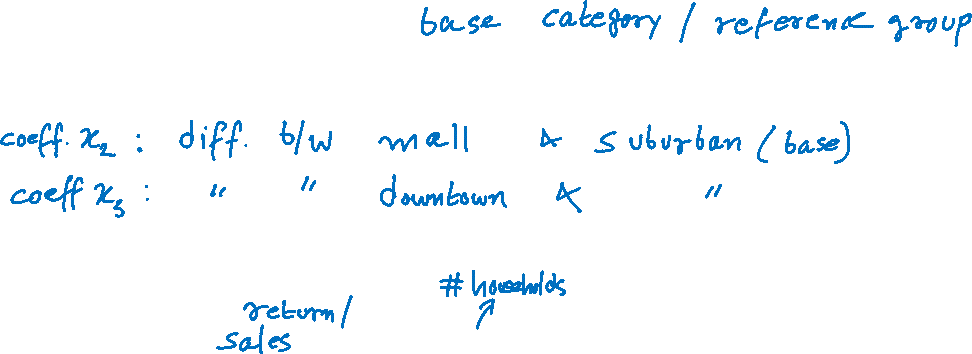 base category / reference group
coeff. x₂ : diff. b/w mall & suburban (base)
coeff x₃ : " " downtown & "
#households
return/
sales